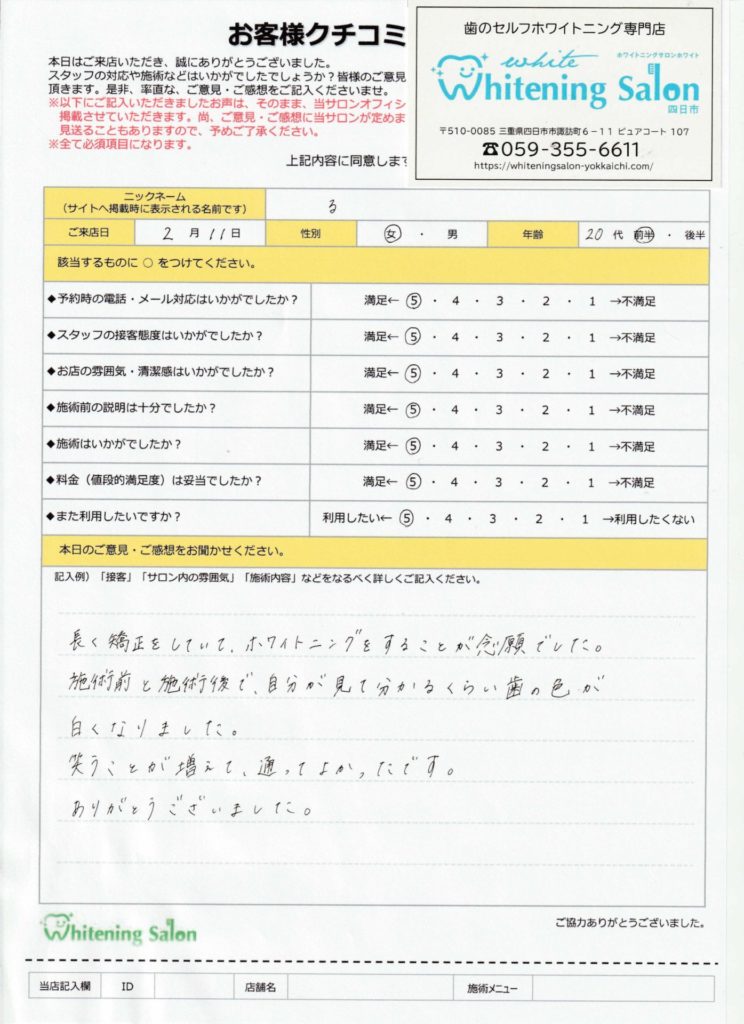 お客様クチコミ
本日はご来店いただき、誠にありがとうございました。
スタッフの対応や施術などはいかがでしたでしょうか？皆様のご意見
頂きます。是非、率直な、ご意見・ご感想をご記入くださいませ。
※以下にご記入いただきましたお声は、そのまま、当サロンオフィシ
掲載させていただきます。尚、ご意見・ご感想に当サロンが定めま
見送ることもありますので、予めご了承ください。
※全て必須項目になります。
上記内容に同意します
歯のセルフホワイトニング専門店
white
ホワイトニングサロンホワイト
Whitening Salon
四日市
〒510-0085 三重県四日市市諏訪町6－11 ピュアコート 107
☎059-355-6611
https://whiteningsalon-yokkaichi.com/
ニックネーム
（サイトへ掲載時に表示される名前です）
る
ご来店日 2 月 11 日 性別 女 ・ 男 年齢 20 代 前半 ・ 後半
該当するものに ○ をつけてください。
◆予約時の電話・メール対応はいかがでしたか？ 満足← 5 ・ 4 ・ 3 ・ 2 ・ 1 →不満足
◆スタッフの接客態度はいかがでしたか？ 満足← 5 ・ 4 ・ 3 ・ 2 ・ 1 →不満足
◆お店の雰囲気・清潔感はいかがでしたか？ 満足← 5 ・ 4 ・ 3 ・ 2 ・ 1 →不満足
◆施術前の説明は十分でしたか？ 満足← 5 ・ 4 ・ 3 ・ 2 ・ 1 →不満足
◆施術はいかがでしたか？ 満足← 5 ・ 4 ・ 3 ・ 2 ・ 1 →不満足
◆料金（値段的満足度）は妥当でしたか？ 満足← 5 ・ 4 ・ 3 ・ 2 ・ 1 →不満足
◆また利用したいですか？ 利用したい← 5 ・ 4 ・ 3 ・ 2 ・ 1 →利用したくない
本日のご意見・ご感想をお聞かせください。
記入例）「接客」「サロン内の雰囲気」「施術内容」などをなるべく詳しくご記入ください。
長く矯正をしていて、ホワイトニングをすることが念願でした。
施術前と施術後で、自分が見て分かるくらい歯の色が
白くなりました。
笑うことが増えて、通ってよかったです。
ありがとうございました。
Whitening Salon
ご協力ありがとうございました。
当店記入欄 ID 店舗名 施術メニュー